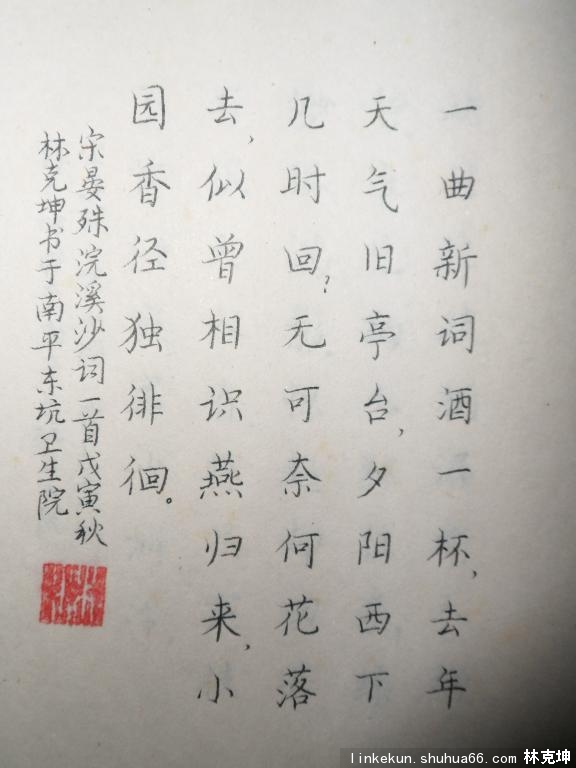 一曲新词酒一杯，去年
天气旧亭台，夕阳西下
几时回？无可奈何花落
去，似曾相识燕归来，小
园香径独徘徊。
宋晏殊浣溪沙词一首戊寅秋
林克坤书于南平东坑卫生院
linkekun.shuhua66.com 林克坤